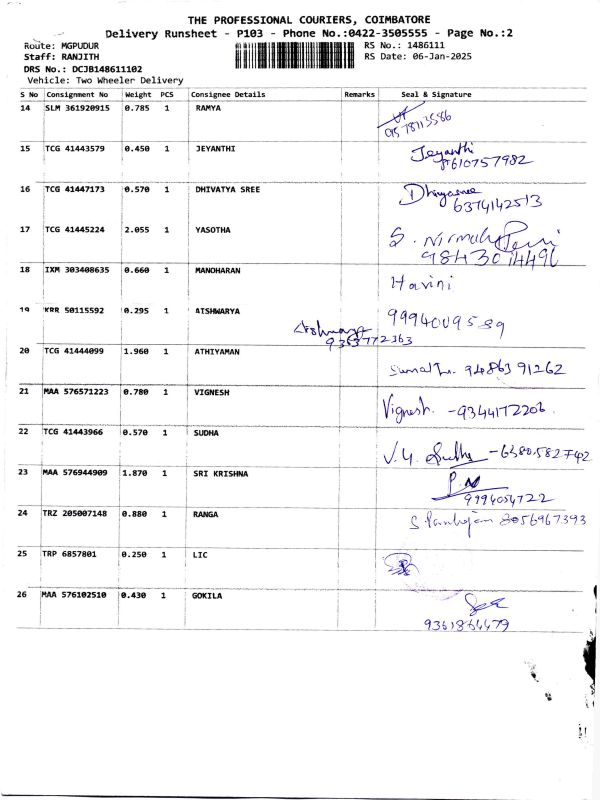 THE PROFESSIONAL COURIERS, COIMBATORE
Delivery Runsheet - P103 - Phone No.:0422-3505555 - Page No.:2
Route: MGPUDUR RS No.: 1486111
Staff: RANJITH RS Date: 06-Jan-2025
DRS No.: DCJB148611102
Vehicle: Two Wheeler Delivery
S No Consignment No Weight PCS Consignee Details Remarks Seal & Signature
14 SLM 361920915 0.785 1 RAMYA
15 TCG 41443579 0.450 1 JEYANTHI Jeyanthi
8610757982
16 TCG 41447173 0.570 1 DHIVATYA SREE
6374142513
17 TCG 41445224 2.055 1 YASOTHA S. Nirmala
9843014496
18 IXM 303408635 0.660 1 MANOHARAN Harini
19 KRR 50115592 0.295 1 AISHWARYA 9994009589
Aishwarya
9363772363
20 TCG 41444099 1.960 1 ATHIYAMAN 94863 91262
21 MAA 576571223 0.780 1 VIGNESH Vignesh. - 9344172206
22 TCG 41443966 0.570 1 SUDHA V.Y. Sudha - 6380582742
23 MAA 576944909 1.870 1 SRI KRISHNA P.N
9994054722
24 TRZ 205007148 0.880 1 RANGA 8056967393
25 TRP 6857801 0.250 1 LIC
26 MAA 576102510 0.430 1 GOKILA
9361864479